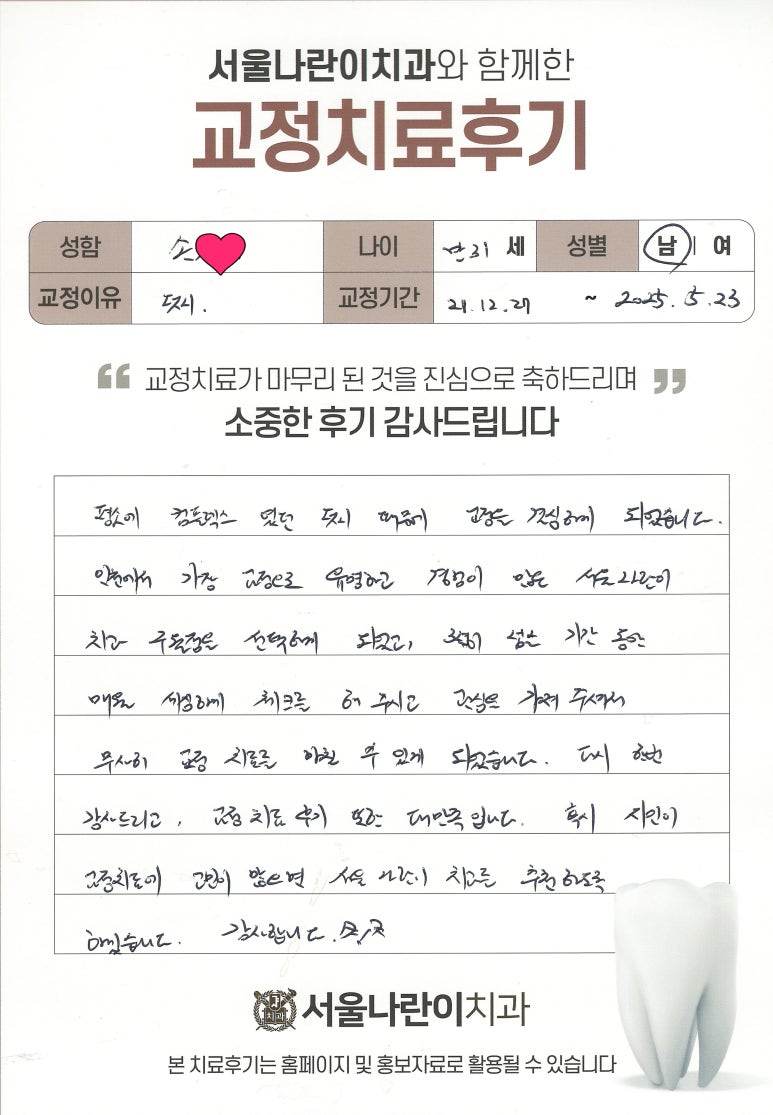 서울나란이치과와 함께한
교정치료후기
성함 손 나이 만 31 세 성별 남 여
교정이유 덧니. 교정기간 21.12.27 ~ 2025.5.23
“ 교정치료가 마무리 된 것을 진심으로 축하드리며 ”
소중한 후기 감사드립니다
평소에 컴플렉스 였던 덧니 때문에 교정을 결심하게 되었습니다.
인천에서 가장 교정으로 유명하고 경험이 많은 서울나란이
치과 구월점을 선택하게 되었고, 짧은 기간 동안
매월 세심하게 체크를 해 주시고 관심을 가져 주셔서
무사히 교정 치료를 마칠 수 있게 되었습니다. 다시 한번
감사드리고, 교정 치료 후기 또한 대만족입니다. 혹시 지인이
교정치료에 고민이 많으면 서울 나란이 치과를 추천 하도록
하겠습니다. 감사합니다.
치과
서울나란이치과
본 치료후기는 홈페이지 및 홍보자료로 활용될 수 있습니다